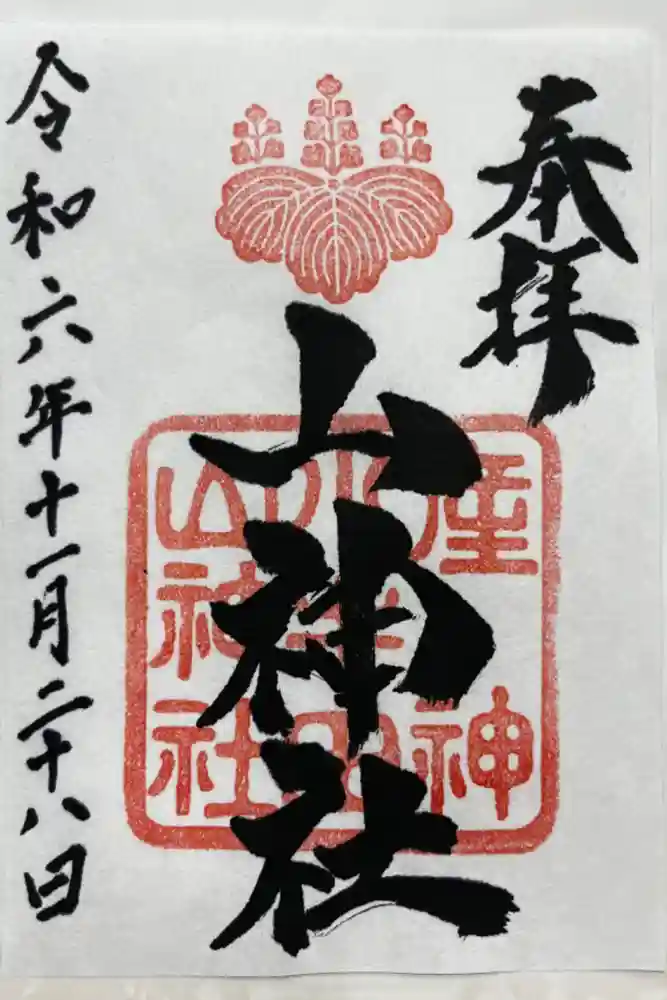 奉拝
山神社
産神
山神社
令和六年十一月二十八日